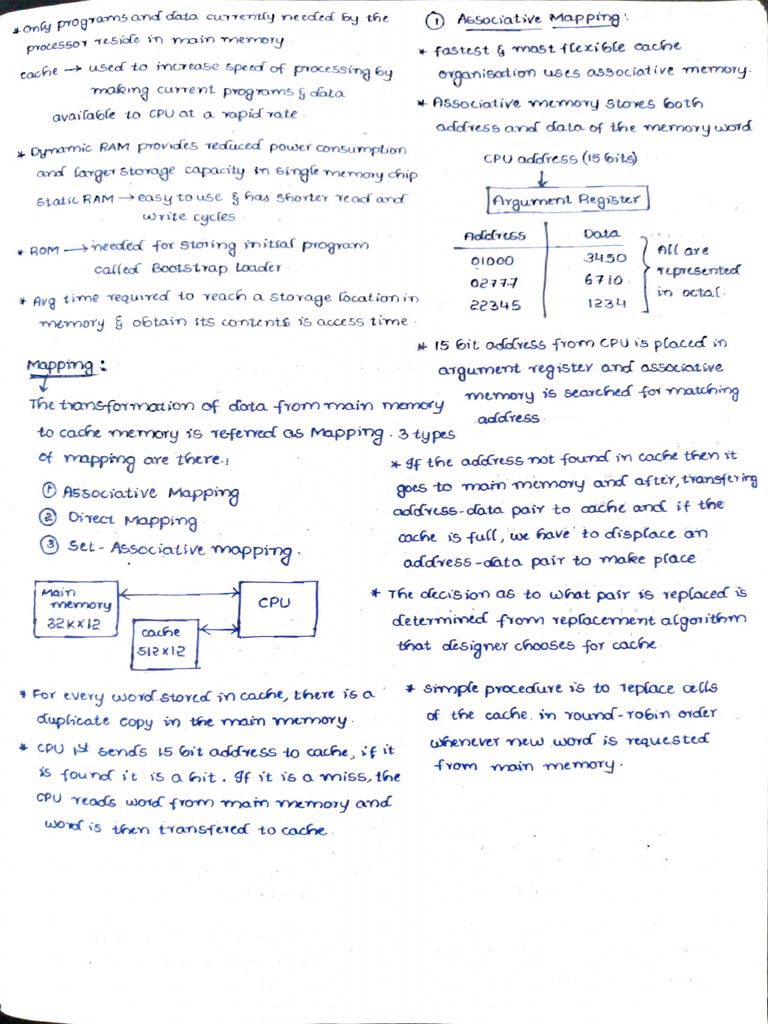 * Only programs and data currently needed by the
processor reside in main memory.
cache → used to increase speed of processing by
making current programs & data
available to CPU at a rapid rate.
* Dynamic RAM provides reduced power consumption
and larger storage capacity in single memory chip
Static RAM → easy to use & has shorter read and
write cycles.
* ROM → needed for storing initial program
called Bootstrap Loader.
* Avg time required to reach a storage location in
memory & obtain its contents is access time.
Mapping:
The transformation of data from main memory
to cache memory is referred as Mapping. 3 types
of mapping are there.,
① Associative Mapping
② Direct Mapping
③ Set-Associative mapping.
Main
memory
32K×12
CPU
cache
512×12
* For every word stored in cache, there is a
duplicate copy in the main memory.
* CPU 1st sends 15 bit address to cache, if it
is found it is a hit. If it is a miss, the
CPU reads word from main memory and
word is then transfered to cache.
① Associative Mapping:
* fastest & most flexible cache
organisation uses associative memory.
* Associative memory stores both
address and data of the memory word
CPU address (15 bits)
Argument Register
Address Data
01000 3450
02777 6710
22345 1234
All are
represented
in octal.
* 15 bit address from CPU is placed in
argument register and associative
memory is searched for matching
address.
* If the address not found in cache then it
goes to main memory and after, transfering
address-data pair to cache and if the
cache is full, we have to displace an
address-data pair to make place.
* The decision as to what pair is replaced is
determined from replacement algorithm
that designer chooses for cache.
* simple procedure is to replace cells
of the cache in round-robin order
whenever new word is requested
from main memory.